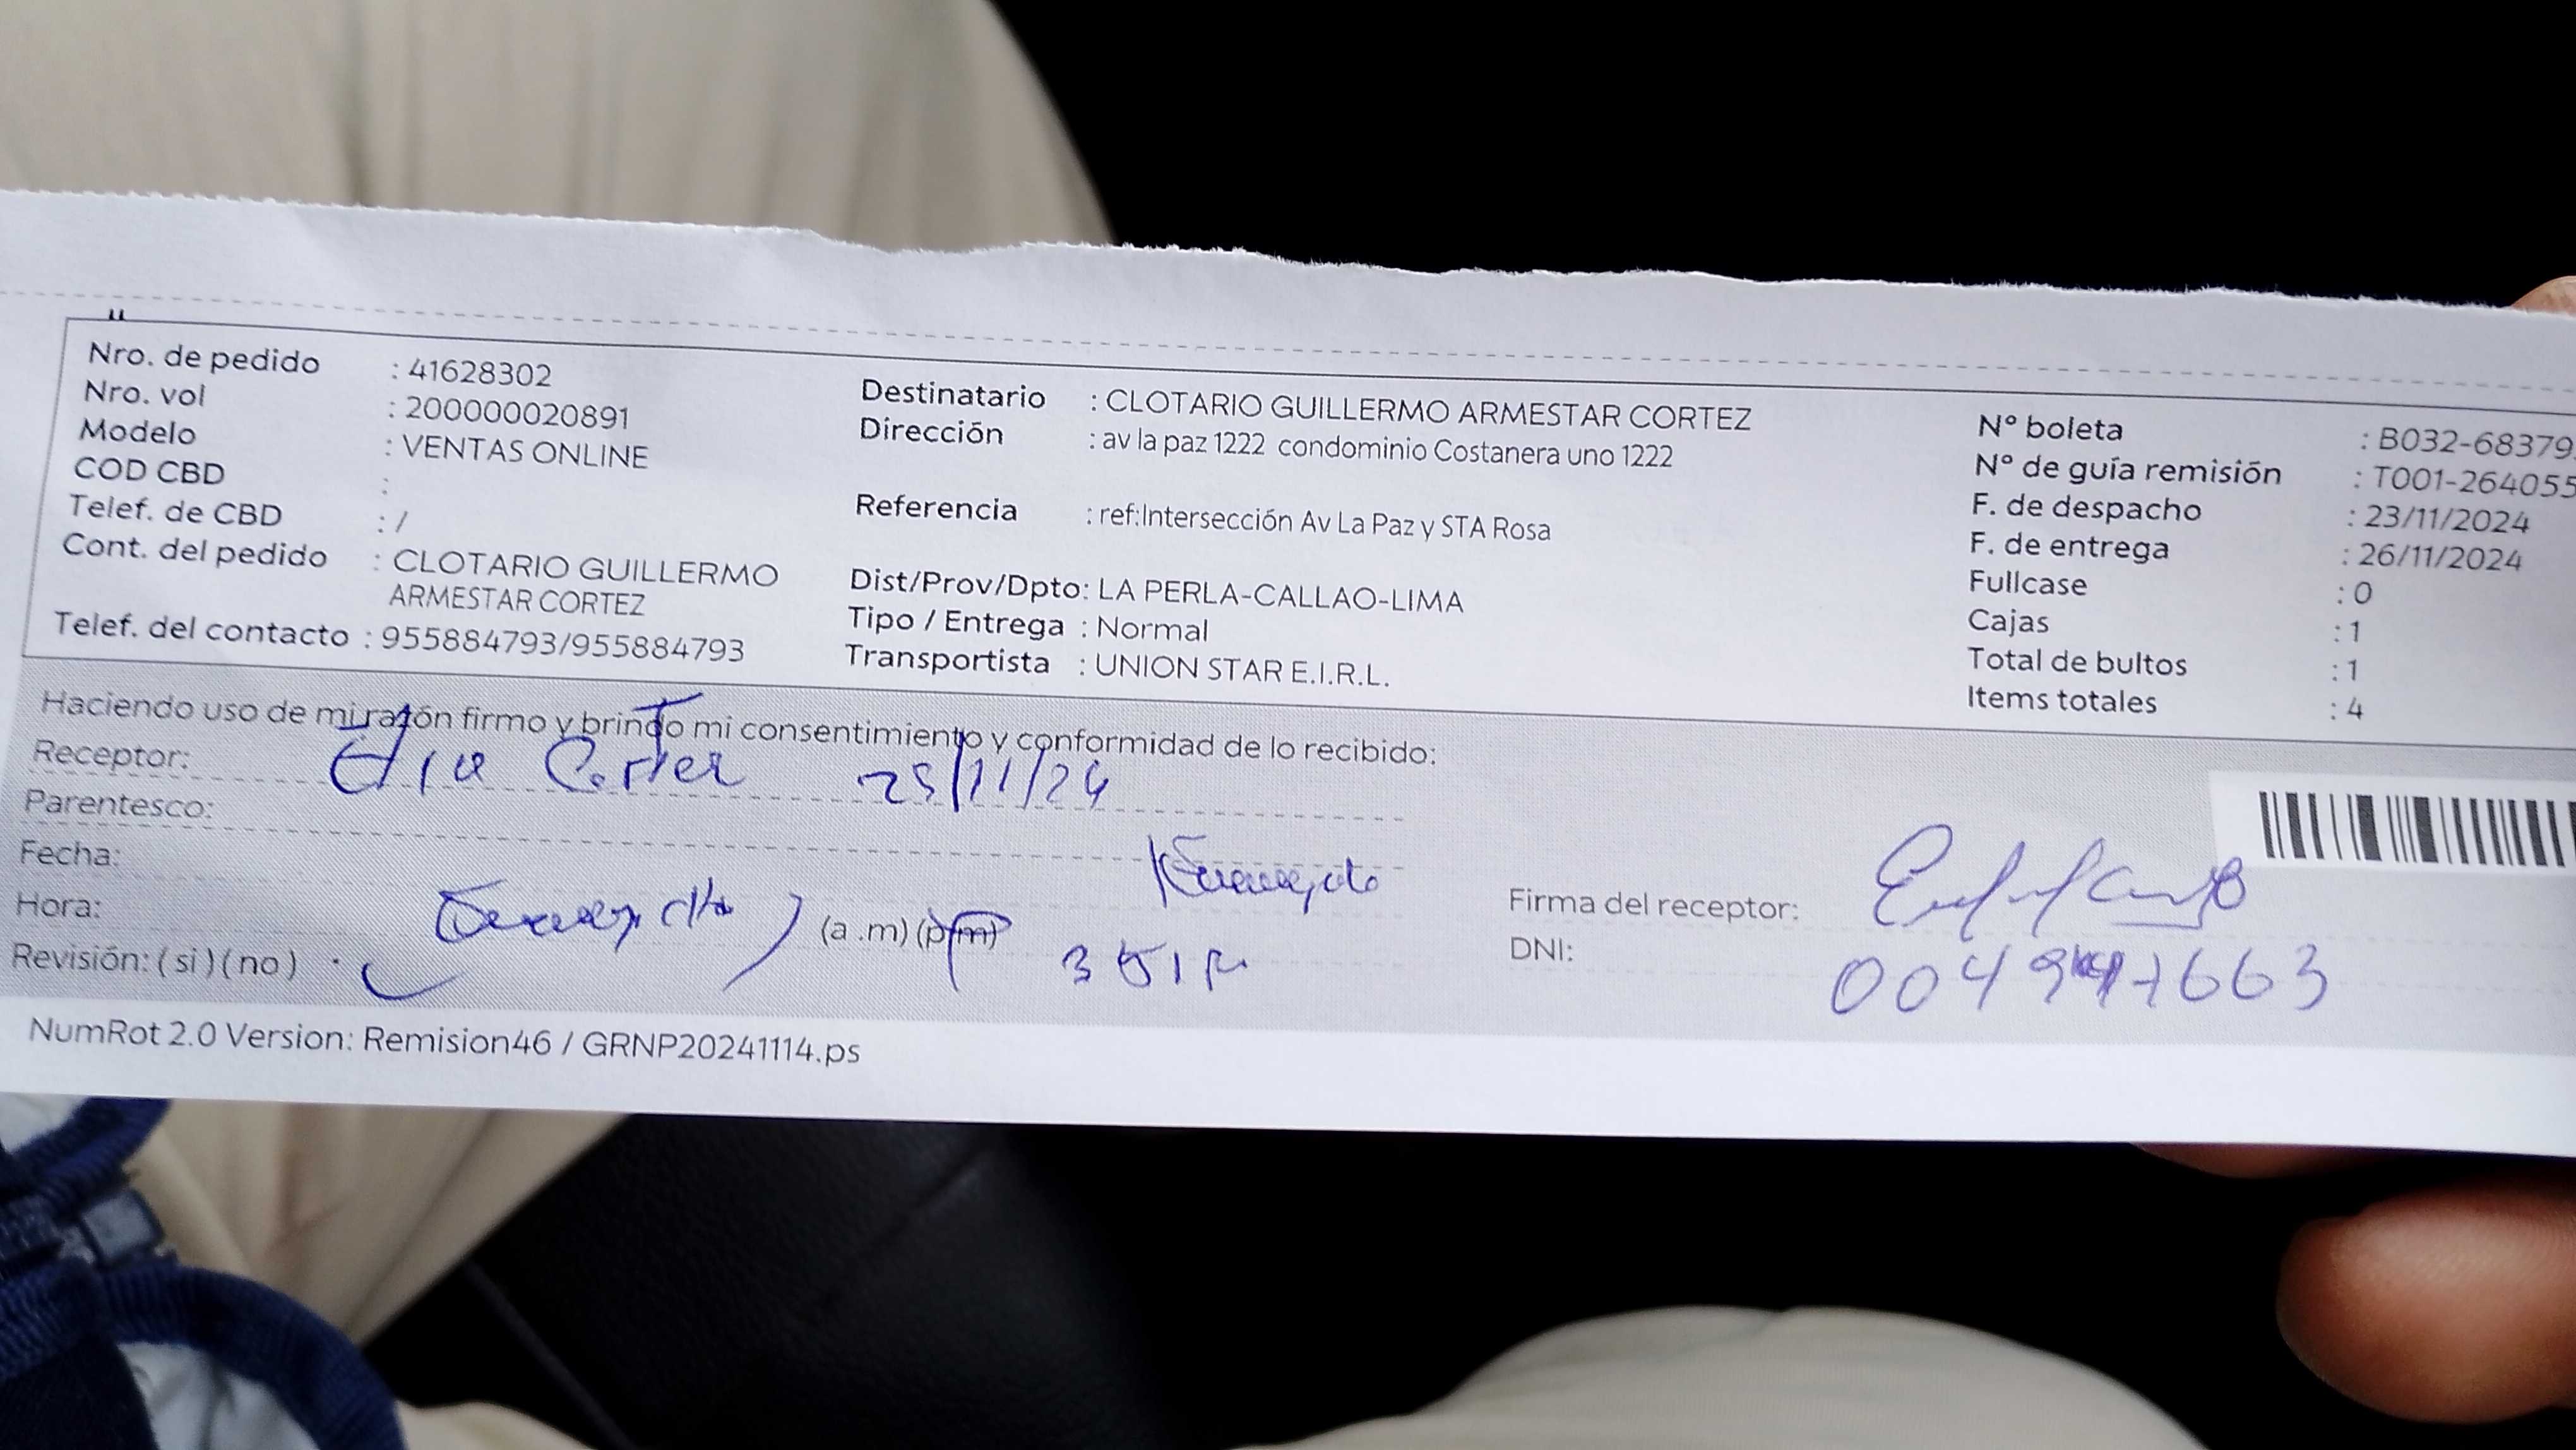 Nro. de pedido : 41628302
Nro. vol : 200000020891
Modelo : VENTAS ONLINE
COD CBD :
Telef. de CBD : /
Cont. del pedido : CLOTARIO GUILLERMO
ARMESTAR CORTEZ
Telef. del contacto : 955884793/955884793
Destinatario : CLOTARIO GUILLERMO ARMESTAR CORTEZ
Dirección : av la paz 1222 condominio Costanera uno 1222
Referencia : ref:Intersección Av La Paz y STA Rosa
Dist/Prov/Dpto: LA PERLA-CALLAO-LIMA
Tipo / Entrega : Normal
Transportista : UNION STAR E.I.R.L.
Nº boleta : B032-68379
Nº de guía remisión : T001-264055
F. de despacho : 23/11/2024
F. de entrega : 26/11/2024
Fullcase : 0
Cajas : 1
Total de bultos : 1
Items totales : 4
Haciendo uso de mi razón firmo y brindo mi consentimiento y conformidad de lo recibido:
Receptor: 25/11/24
Parentesco:
Fecha:
Hora: (a .m) (p.m)
Revisión: ( si ) ( no )
Firma del receptor:
DNI:
NumRot 2.0 Version: Remision46 / GRNP20241114.ps